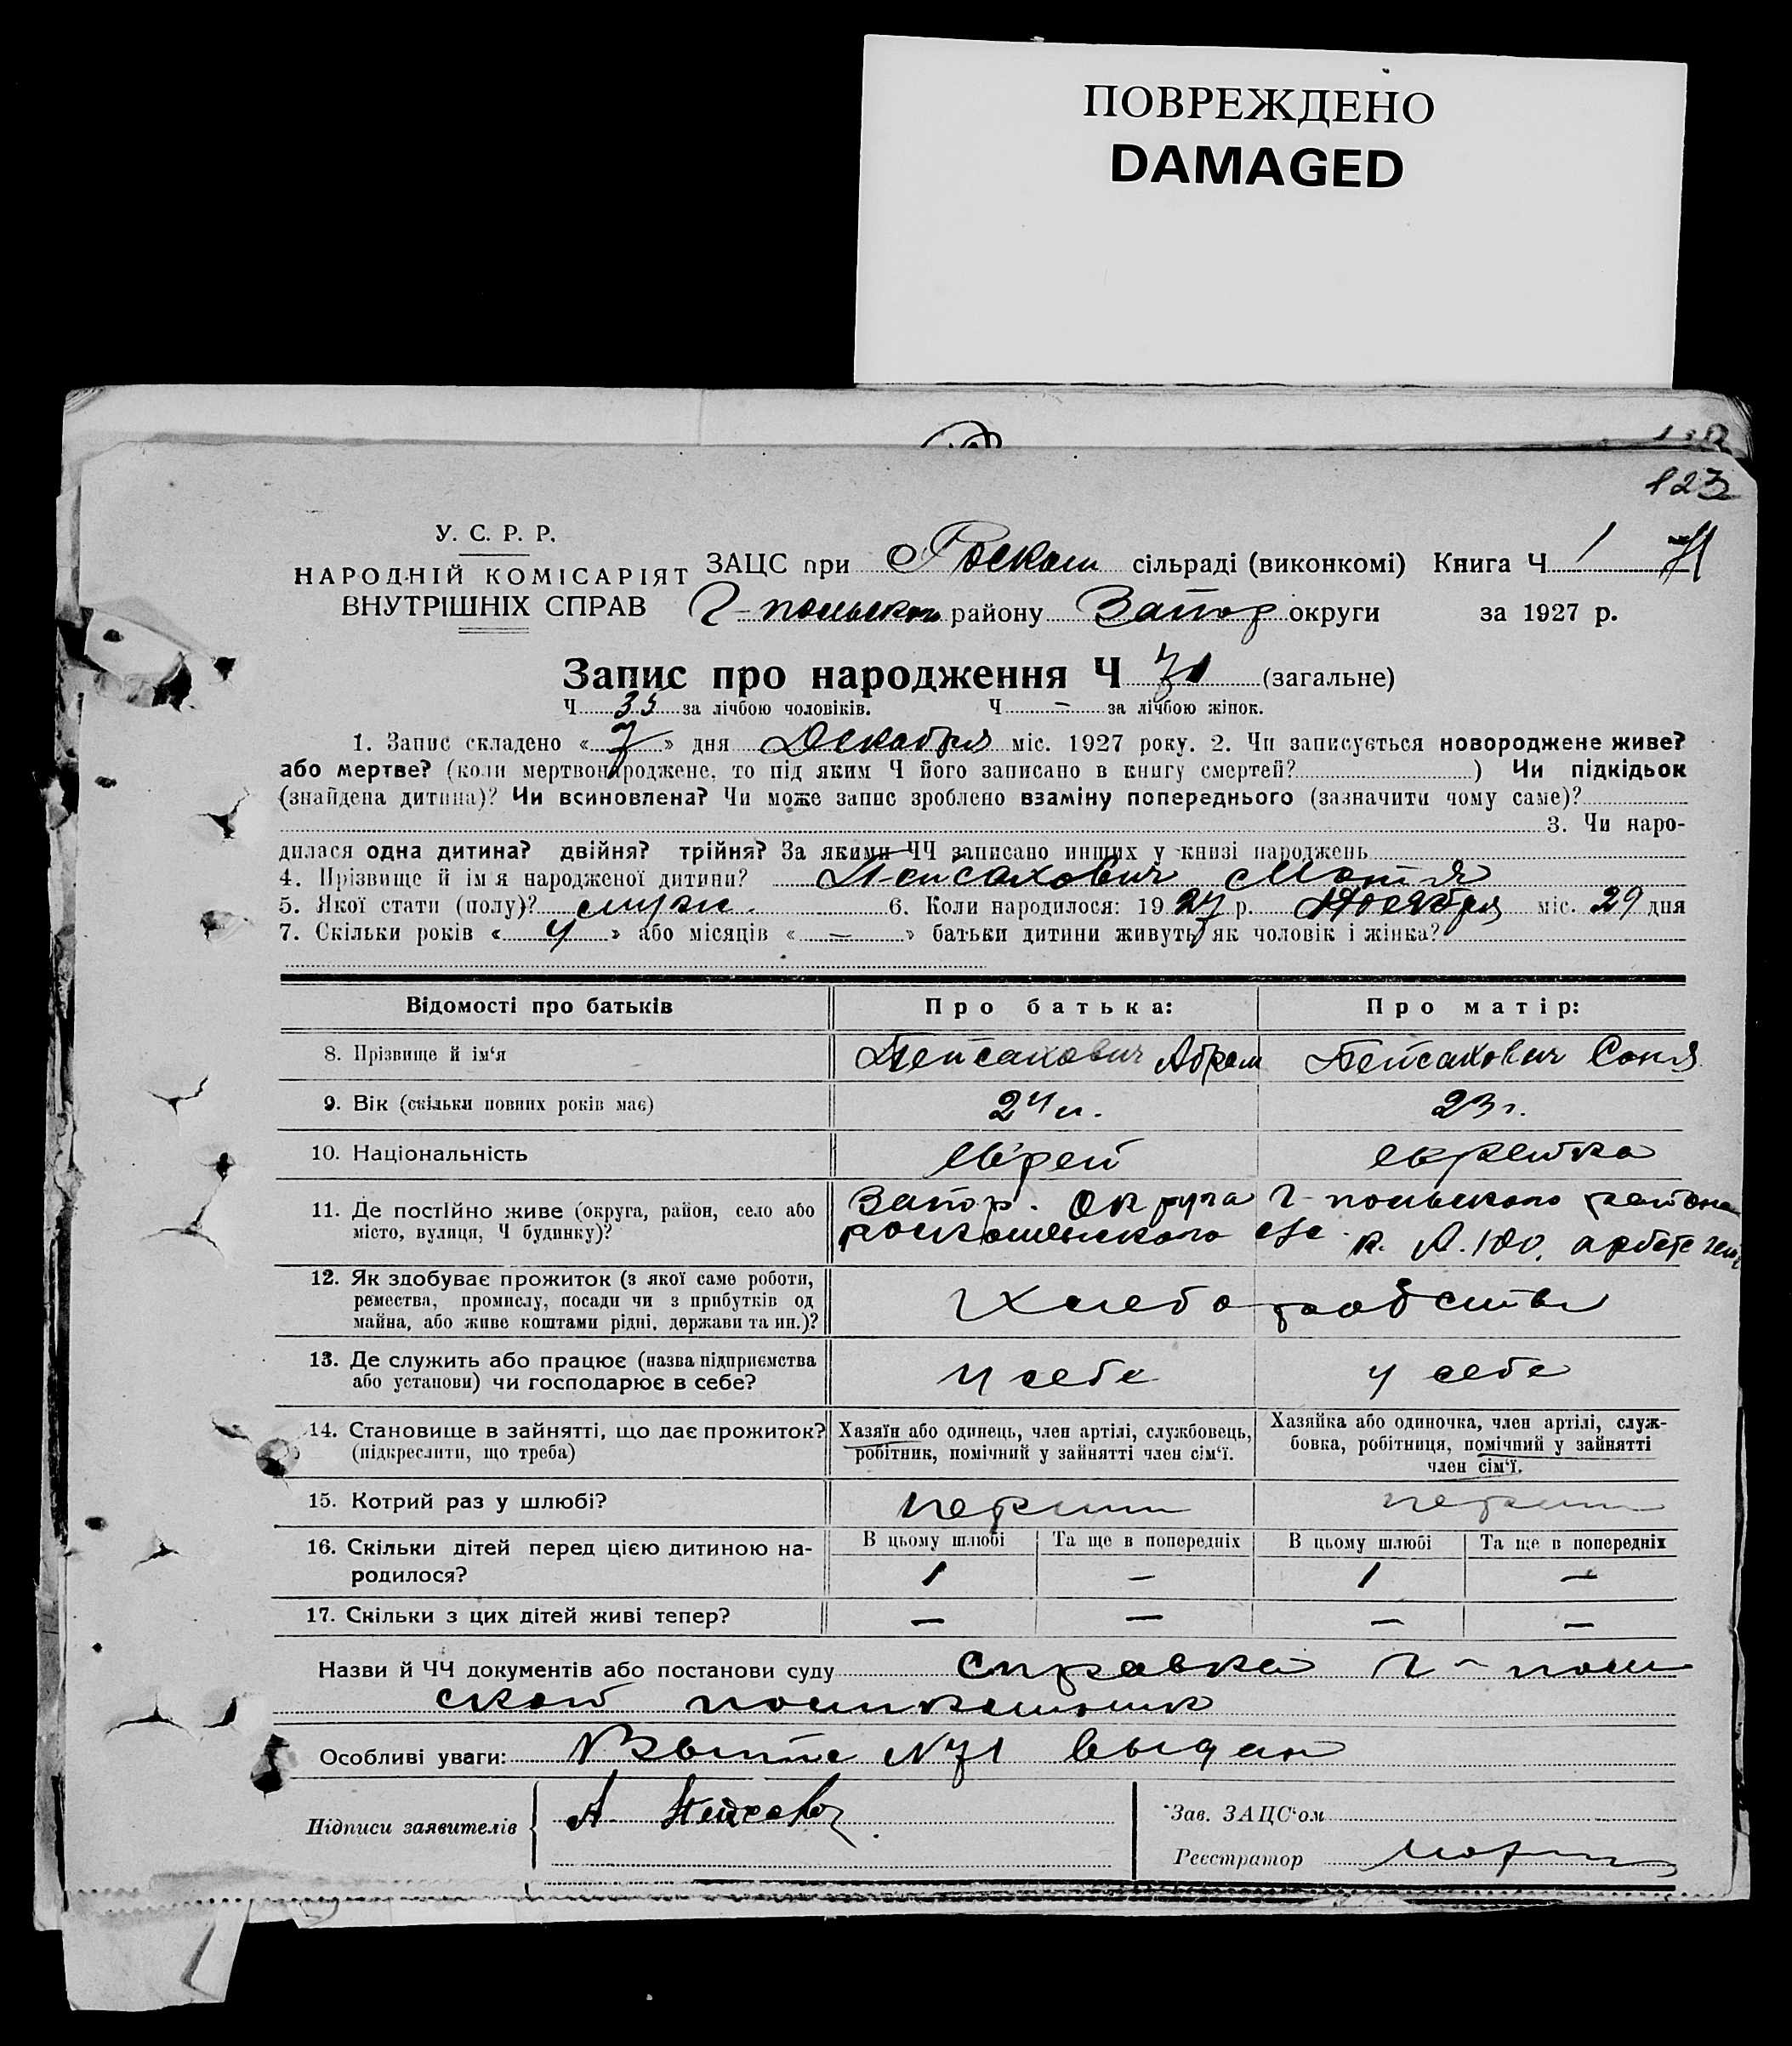 ПОВРЕЖДЕНО
DAMAGED
123
У. С. Р. Р.
НАРОДНІЙ КОМІСАРІЯТ
ВНУТРІШНІХ СПРАВ
ЗАЦС при Роскош сільраді (виконкомі) Книга Ч 1 71
Г-польськ району Запор округи за 1927 р.
Запис про народження Ч 71 (загальне)
Ч 35 за лічбою чоловіків. Ч — за лічбою жінок.
1. Запис складено « 7 » дня Декабря міс. 1927 року. 2. Чи записується новороджене живе?
або мертве? (коли мертвонароджене, то під яким Ч його записано в книгу смертей? ) Чи підкідьок
(знайдена дитина)? Чи всиновлена? Чи може запис зроблено взаміну попереднього (зазначити чому саме)?
3. Чи наро-
дилася одна дитина? двійня? трійня? За якими ЧЧ записано инших у книзі народжень
4. Прізвище й ім я народженої дитини? Пейсахович Мотя
5. Якої стати (полу)? муж. 6. Коли народилося: 19 27 р. Ноября міс. 29 дня
7. Скільки років « 4 » або місяців « — » батьки дитини живуть як чоловік і жінка?
Відомості про батьків Про батька: Про матір:
8. Прізвище й ім‘я Пейсахович Абрам Пейсахович Соня
9. Вік (скільки повних років має) 24 23 г.
10. Національність еврей еврейка
11. Де постійно живе (округа, район, село або Запор. Округа Г-польського района
місто, вулиця, Ч будинку)? роскошенского с/с
12. Як здобуває прожиток (з якої саме роботи,
ремества, промислу, посади чи з прибутків од
майна, або живе коштами рідні, держави та ин.)? Хлеборобство
13. Де служить або працює (назва підприємства у себе у себе
або установи) чи господарює в себе?
14. Становище в зайнятті, що дає прожиток? Хазяїн або одинець, член артілі, службовець, Хазяйка або одиночка, член артілі, служ-
(підкреслити, що треба) робітник, помічний у зайнятті член сім‘ї. бовка, робітниця, помічний у зайнятті
член сім‘ї.
15. Котрий раз у шлюбі? перши перши
16. Скільки дітей перед цією дитиною на- В цьому шлюбі Та ще в попередніх В цьому шлюбі Та ще в попередніх
родилося? 1 — 1 —
17. Скільки з цих дітей живі тепер? — — — —
Назви й ЧЧ документів або постанови суду справка Г-поль
ской
Особливі уваги: N 71 выдан
Підписи заявителів А.
Зав. ЗАЦС‘ом
Реєстратор